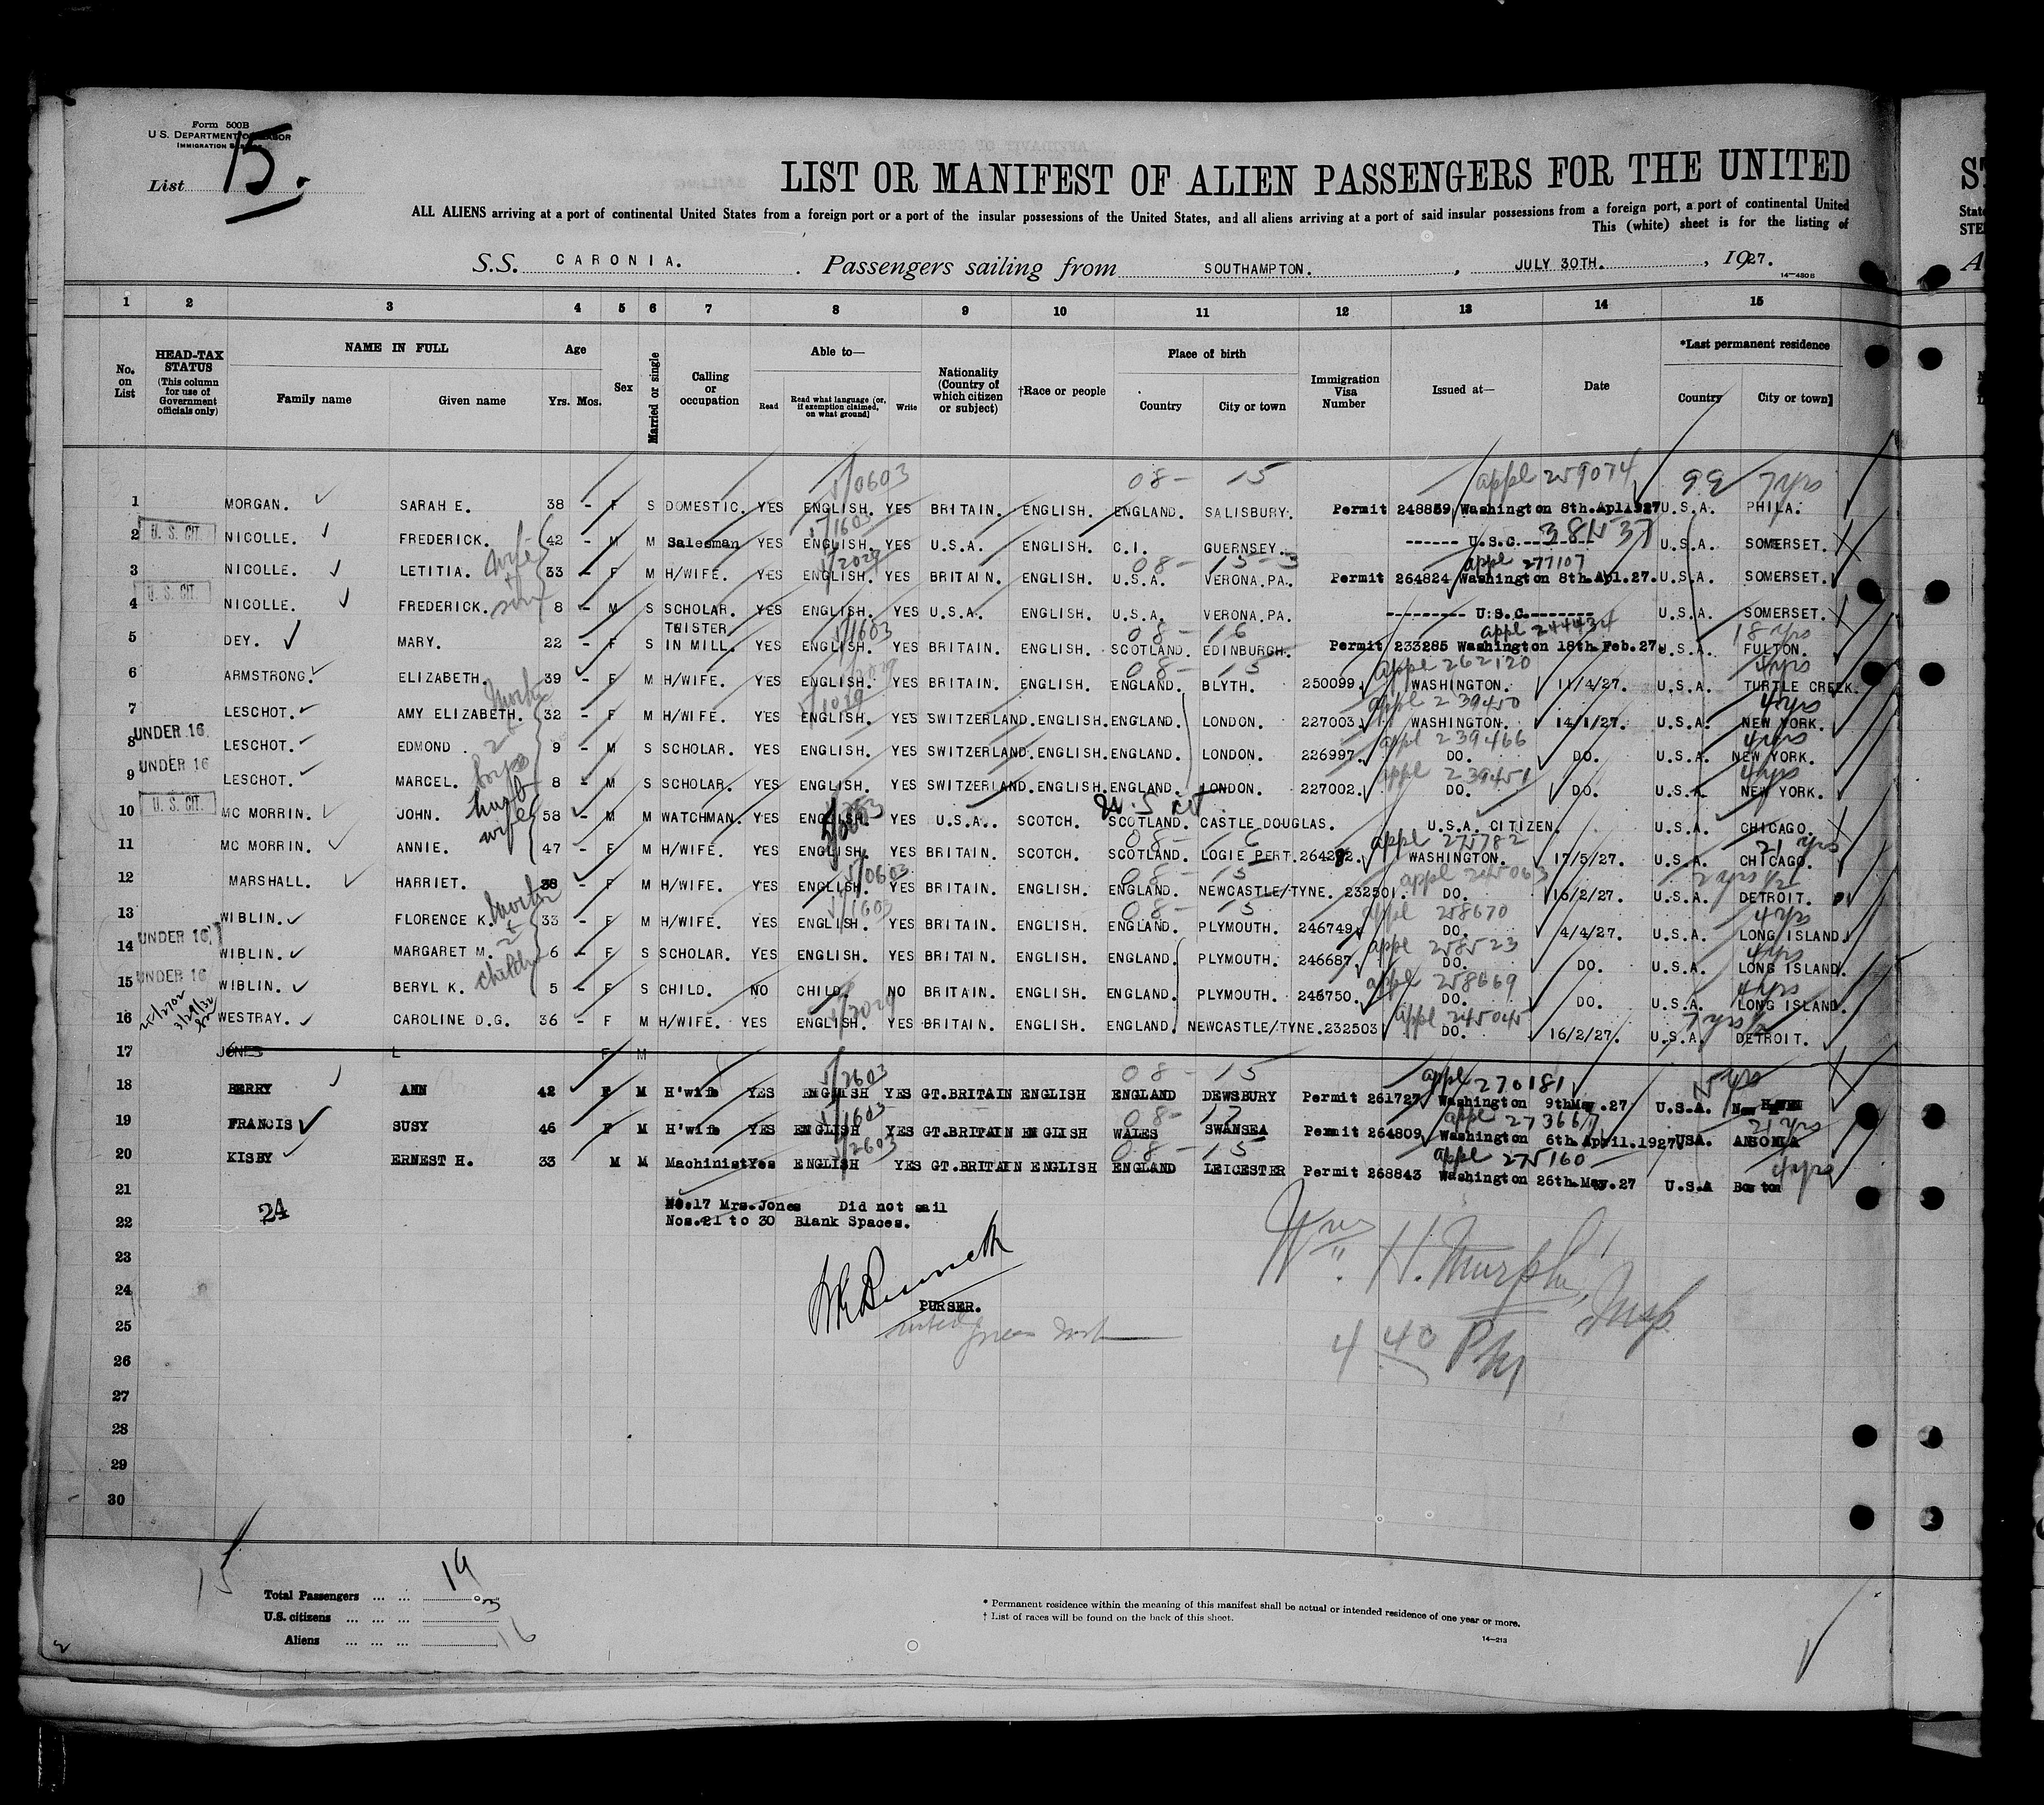 Form 500B
U.S. DEPARTMENT OF LABOR
IMMIGRATION SERVICE
List 15.
LIST OR MANIFEST OF ALIEN PASSENGERS FOR THE UNITED
ALL ALIENS arriving at a port of continental United States from a foreign port or a port of the insular possessions of the United States, and all aliens arriving at a port of said insular possessions from a foreign port, a port of continental United
This (white) sheet is for the listing of
S.S. CARONIA. Passengers sailing from SOUTHAMPTON. , JULY 30TH. , 1927.
14-480 B
1 2 3 4 5 6 7 8 9 10 11 12 13 14 15
No. on List HEAD-TAX STATUS (This column for use of Government officials only) NAME IN FULL Family name Given name Age Yrs. Mos. Sex Married or single Calling or occupation Able to— Read Read what language (or, if exemption claimed, on what ground) Write Nationality (Country of which citizen or subject) †Race or people Place of birth Country City or town Immigration Visa Number Issued at— Date *Last permanent residence Country City or town
5/0603 08- 15 appl 259074 7 yrs
1 MORGAN. SARAH E. 38 - F S DOMESTIC. YES ENGLISH. YES BRITAIN. ENGLISH. ENGLAND. SALISBURY. Permit 248859 Washington 8th.Apl1927 U.S.A. PHILA.
5/1603 381537
2 U.S. CIT. NICOLLE. FREDERICK. 42 - M M Salesman YES ENGLISH. YES U.S.A. ENGLISH. C.I. GUERNSEY. ------ U.S.C. U.S.A. SOMERSET.
wife + son 5/2029 08- 15-3 appl 277107
3 NICOLLE. LETITIA. 33 - F M H/WIFE. YES ENGLISH. YES BRITAIN. ENGLISH. U.S.A. VERONA.PA. Permit 264824 Washington 8th.Apl.27. U.S.A. SOMERSET.
4 U.S. CIT. NICOLLE. FREDERICK. 8 - M S SCHOLAR. YES ENGLISH. YES U.S.A. ENGLISH. U.S.A. VERONA.PA. --------- U.S.C.------- U.S.A. SOMERSET.
5/1603 08- 16 appl 244434 18 yrs
5 DEY. MARY. 22 - F S TWISTER IN MILL. YES ENGLISH. YES BRITAIN. ENGLISH. SCOTLAND. EDINBURGH. Permit 233285 Washington 18th.Feb.27. U.S.A. FULTON.
08- 15 appl 262120 4 yrs
6 ARMSTRONG. ELIZABETH. 39 - F M H/WIFE. YES ENGLISH. YES BRITAIN. ENGLISH. ENGLAND. BLYTH. 250099. WASHINGTON. 11/4/27. U.S.A. TURTLE CREEK.
appl 239450 4 yrs
7 LESCHOT. AMY ELIZABETH. 32 - F M H/WIFE. YES ENGLISH. YES SWITZERLAND. ENGLISH. ENGLAND. LONDON. 227003. WASHINGTON. 14/1/27. U.S.A. NEW YORK.
mother 2 boys appl 239466 4 yrs
8 UNDER 16 LESCHOT. EDMOND. 9 - M S SCHOLAR. YES ENGLISH. YES SWITZERLAND. ENGLISH. ENGLAND. LONDON. 226997. DO. DO. U.S.A. NEW YORK.
appl 239451 4 yrs
9 UNDER 16 LESCHOT. MARCEL. 8 - M S SCHOLAR. YES ENGLISH. YES SWITZERLAND. ENGLISH. ENGLAND. LONDON. 227002. DO. DO. U.S.A. NEW YORK.
husb wife U.S. cit
10 U.S. CIT. MC MORRIN. JOHN. 58 - M M WATCHMAN. YES ENGLISH. YES U.S.A.. SCOTCH. SCOTLAND. CASTLE DOUGLAS. U.S.A. CITIZEN. U.S.A. CHICAGO.
08- 6 appl 275782 21 yrs
11 MC MORRIN. ANNIE. 47 - F M H/WIFE. YES ENGLISH. YES BRITAIN. SCOTCH. SCOTLAND. LOGIE PERT. WASHINGTON. 17/5/27. U.S.A. CHICAGO.
5/0603 08- 15 appl 245063 2 yrs 1/2
12 MARSHALL. HARRIET. 38 - F M H/WIFE. YES ENGLISH. YES BRITAIN. ENGLISH. ENGLAND. NEWCASTLE/TYNE. 232501 DO. 16/2/27. U.S.A. DETROIT.
mother + 2 children 5/1603 08- 15 appl 258670 4 yrs
13 WIBLIN. FLORENCE K. 33 - F M H/WIFE. YES ENGLISH. YES BRITAIN. ENGLISH. ENGLAND. PLYMOUTH. 246749. DO. 4/4/27. U.S.A. LONG ISLAND.
appl 258523 4 yrs
14 UNDER 16 WIBLIN. MARGARET M. 6 - F S SCHOLAR. YES ENGLISH. YES BRITAIN. ENGLISH. ENGLAND. PLYMOUTH. 246687. DO. DO. U.S.A. LONG ISLAND.
appl 258669 4 yrs
15 UNDER 16 WIBLIN. BERYL K. 5 - F S CHILD. NO CHILD. NO BRITAIN. ENGLISH. ENGLAND. PLYMOUTH. 246750. DO. DO. U.S.A. LONG ISLAND.
5/2029 appl 245045
16 WESTRAY. CAROLINE D.G. 36 - F M H/WIFE. YES ENGLISH. YES BRITAIN. ENGLISH. ENGLAND. NEWCASTLE/TYNE. 232503 DO. 16/2/27. U.S.A. DETROIT.
17 JONES L F M
5/2603 08- 15 appl 270181
18 BERRY ANN 42 F M H'wife YES ENGLISH YES GT.BRITAIN ENGLISH ENGLAND DEWSBURY Permit 261727 Washington 9thMay.27 U.S.A. New HAVEN
5/1603 08- 17 appl 273667 21 yrs
19 FRANCIS SUSY 46 F M H'wife YES ENGLISH YES GT.BRITAIN ENGLISH WALES SWANSEA Permit 264809 Washington 6th.April.1927 USA. ANSONIA
5/2603 08- 15 appl 275160 4 yrs
20 KISBY ERNEST H. 33 M M Machinist Yes ENGLISH YES GT.BRITAIN ENGLISH ENGLAND LEICESTER Permit 268843 Washington 26th.May.27 U.S.A Boston
21 No.17 Mrs.Jones Did not sail
22 24 Nos.21 to 30 Blank Spaces.
23
24
PURSER.
Wm. H. Murphy, Insp.
4 40 PM
25
26
27
28
29
30
15
Total Passengers ... ... 19
U.S. citizens ... ... ... 3
Aliens ... ... ... 16
* Permanent residence within the meaning of this manifest shall be actual or intended residence of one year or more.
† List of races will be found on the back of this sheet.
14-213